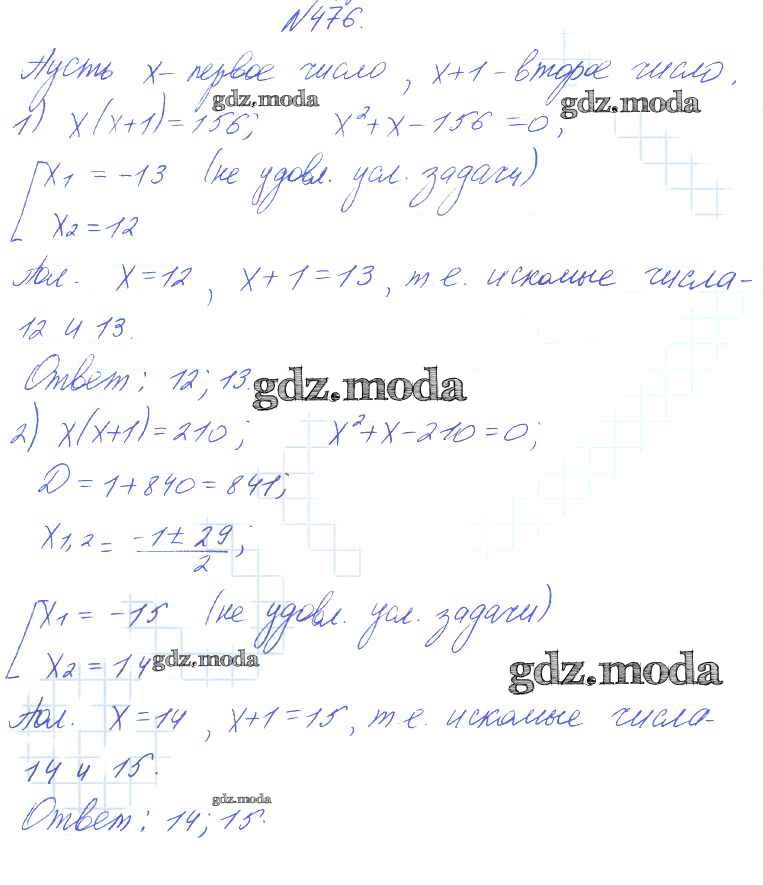 №476.
Пусть x - первое число, x+1 - второе число.
gdz.moda gdz.moda
1) x(x+1)=156; x²+x-156=0;
x₁ = -13 (не удовл. усл. задачи)
x₂ = 12
Пол. x=12, x+1=13, т.е. искомые числа -
12 и 13.
Ответ: 12; 13.
gdz.moda
2) x(x+1)=210; x²+x-210=0;
D = 1+840 = 841;
x₁,₂ = (-1 ± 29)/2;
x₁ = -15 (не удовл. усл. задачи)
x₂ = 14
gdz.moda gdz.moda
Пол. x=14, x+1=15, т.е. искомые числа -
14 и 15.
gdz.moda
Ответ: 14; 15.